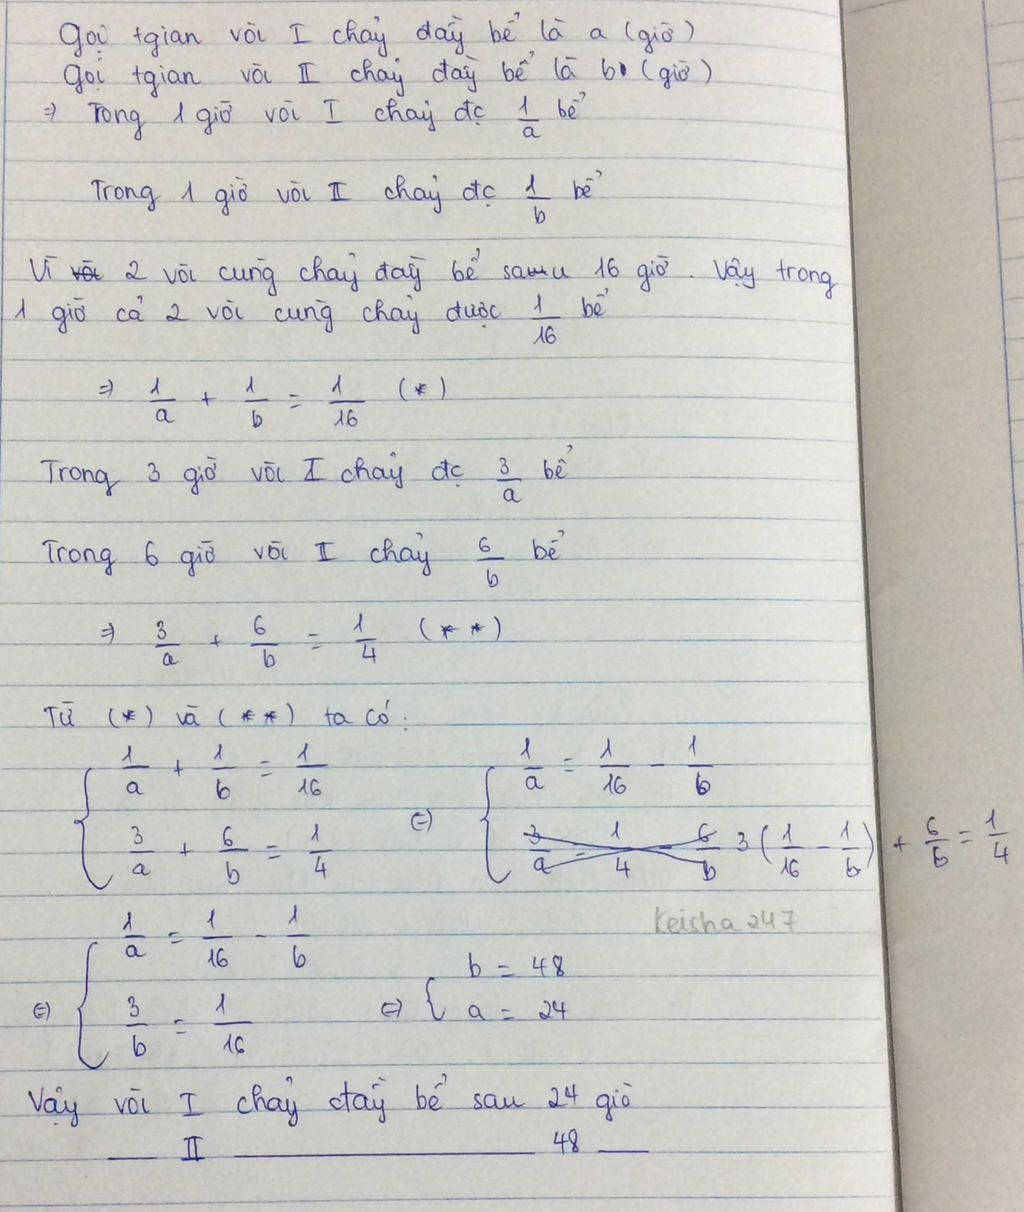 Gọi tgian vòi I chảy đầy bể là a (giờ)
Gọi tgian vòi II chảy đầy bể là b (giờ)
=> Trong 1 giờ vòi I chảy đc 1/a bể
Trong 1 giờ vòi II chảy đc 1/b bể
Vì 2 vòi cùng chảy đầy bể sau 16 giờ. Vậy trong
1 giờ cả 2 vòi cùng chảy được 1/16 bể
=> 1/a + 1/b = 1/16 (*)
Trong 3 giờ vòi I chảy đc 3/a bể
Trong 6 giờ vòi II chảy 6/b bể
=> 3/a + 6/b = 1/4 (**)
Từ (*) và (**) ta có:
{ 1/a + 1/b = 1/16
3/a + 6/b = 1/4
<=> { 1/a = 1/16 - 1/b
3(1/16 - 1/b) + 6/b = 1/4
Keisha247
<=> { 1/a = 1/16 - 1/b
3/b = 1/16
<=> { b = 48
a = 24
Vậy vòi I chảy đầy bể sau 24 giờ
— II — 48 —